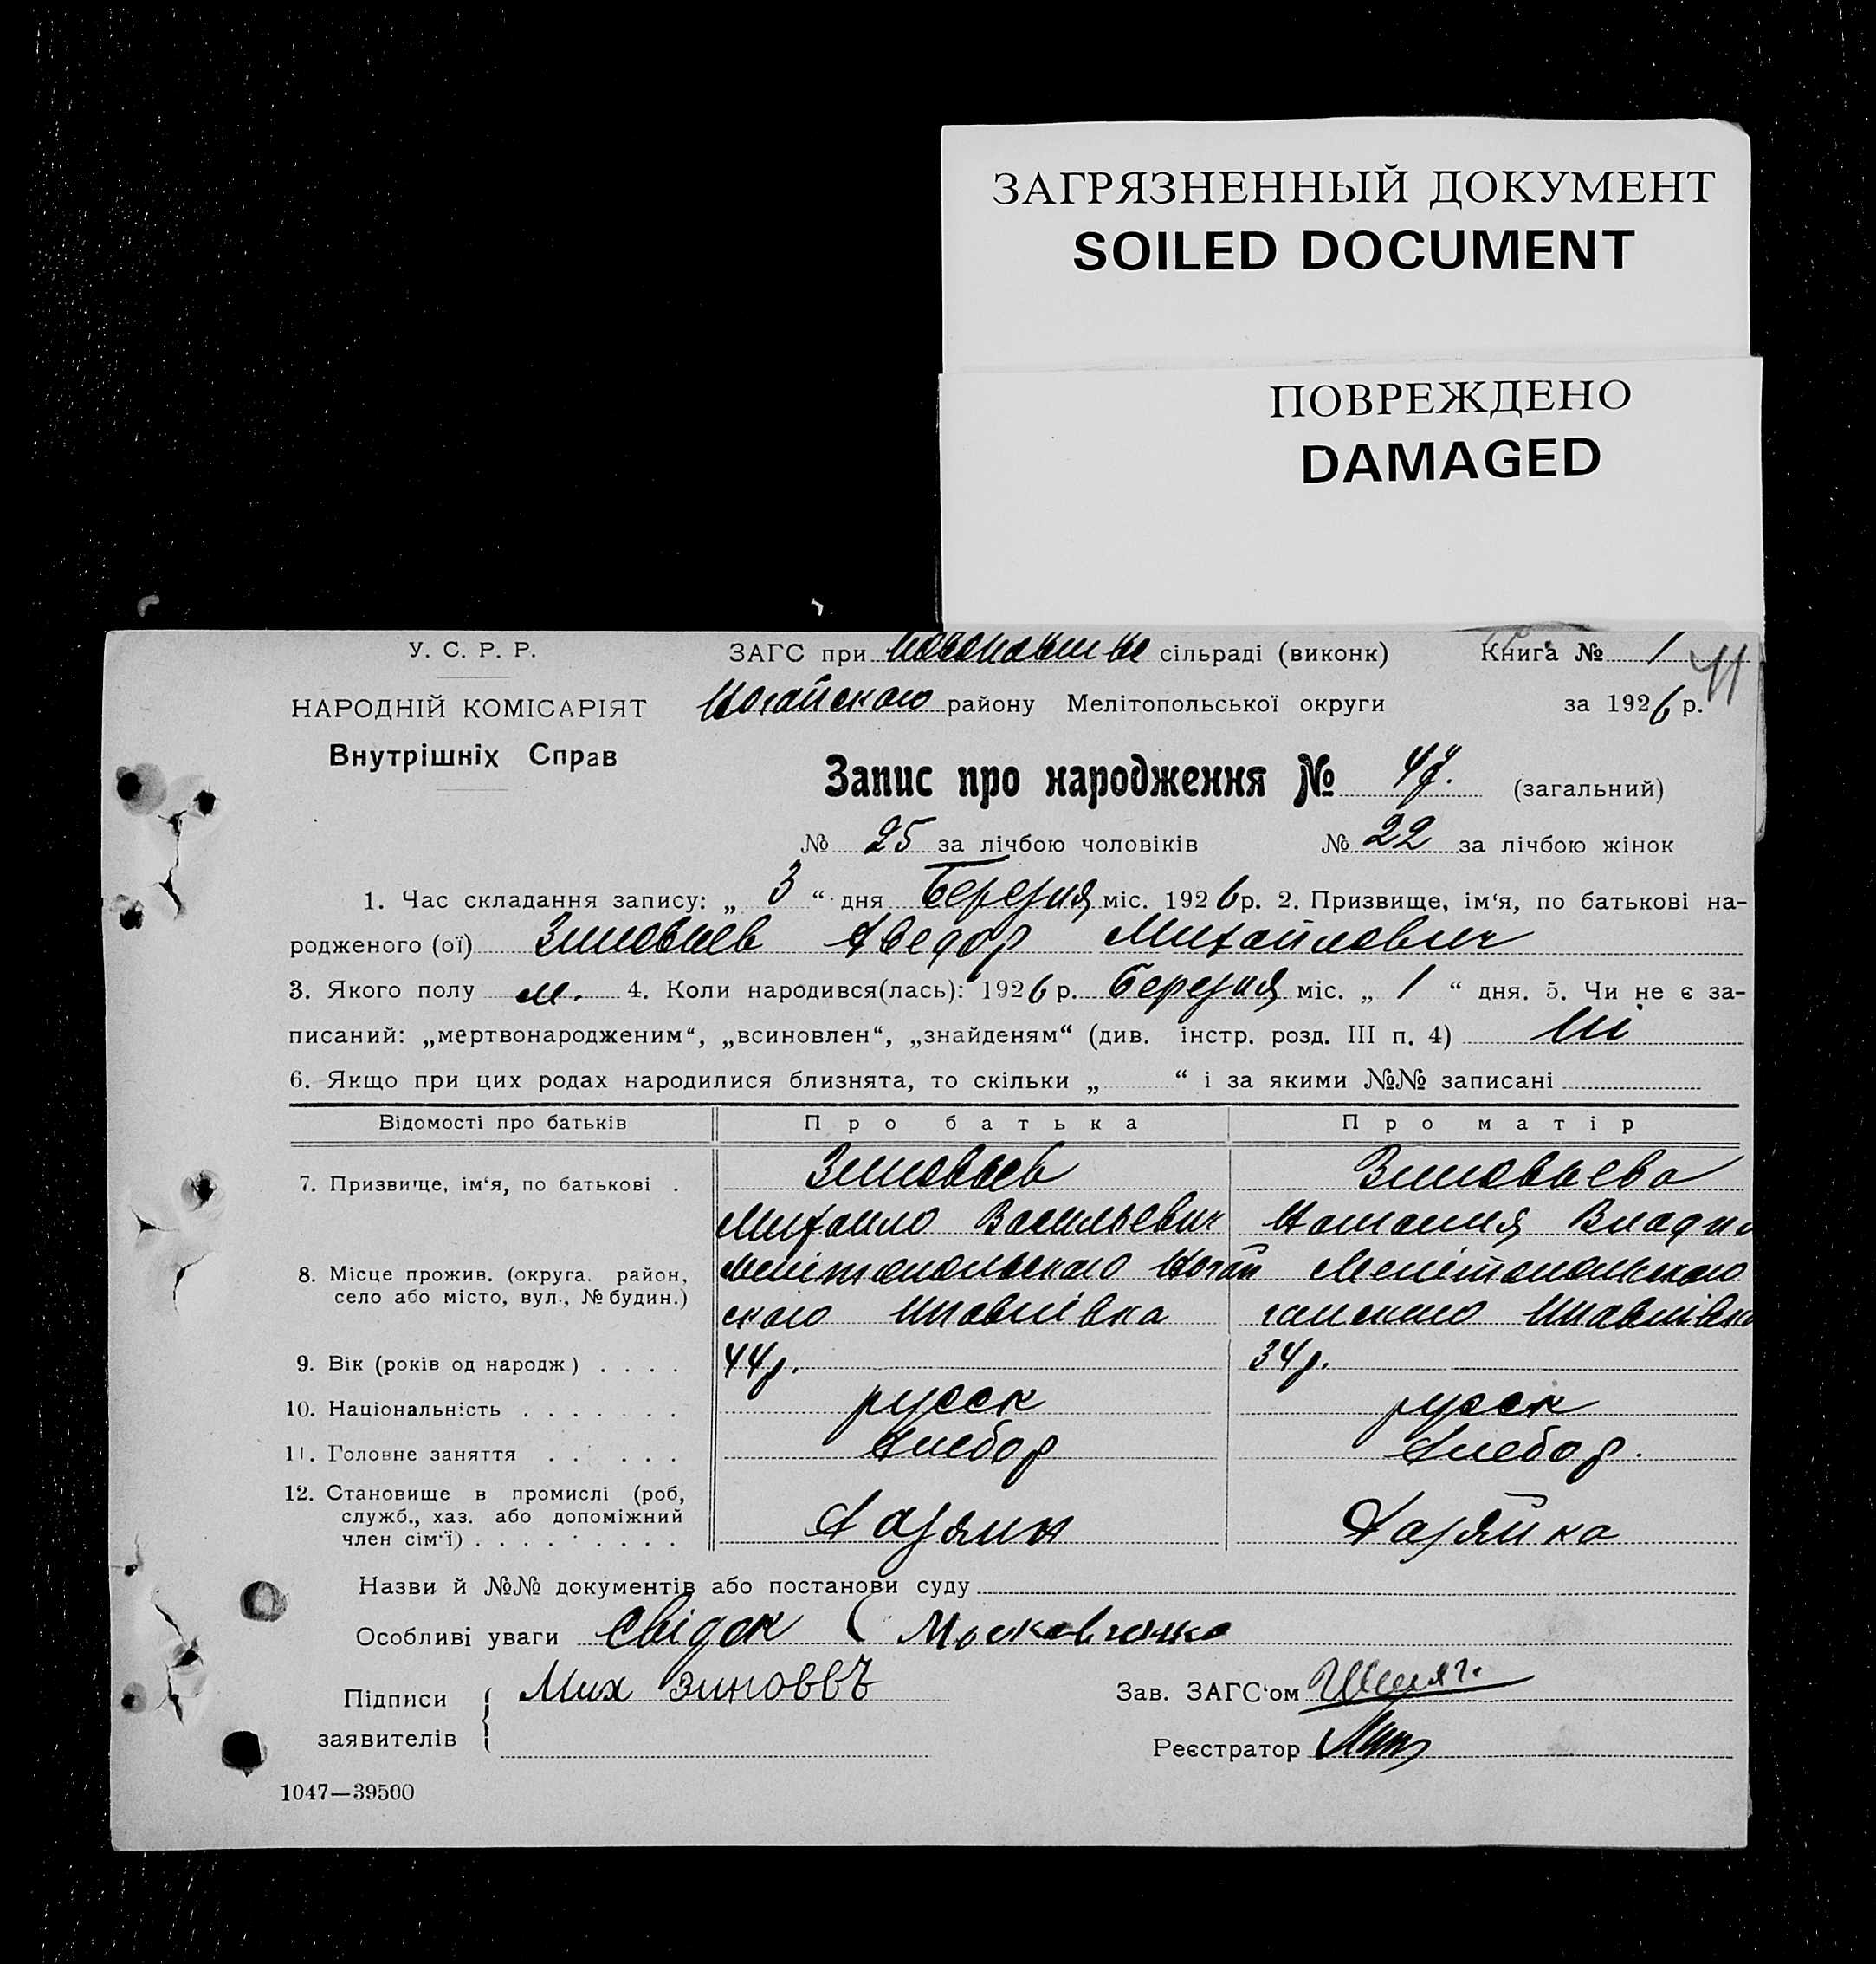 ЗАГРЯЗНЕННЫЙ ДОКУМЕНТ
SOILED DOCUMENT
ПОВРЕЖДЕНО
DAMAGED
У. С. Р. Р.
ЗАГС при сільраді (виконк) Книга № 1
НАРОДНІЙ КОМІСАРІЯТ
Ногайского району Мелітопольської округи за 1926 р.
Внутрішніх Справ
Запис про народження № 47. (загальний)
№ 25 за лічбою чоловіків № 22 за лічбою жінок
1. Час складання запису: „ 3 “ дня Березня міс. 1926 р. 2. Призвище, ім‘я, по батькові на-
родженого (ої) Зиновьев Хведор Михайлович
3. Якого полу м. 4. Коли народився(лась): 1926 р. Березня міс. „ 1 “ дня. 5. Чи не є за-
писаний: „мертвонародженим“, „всиновлен“, „знайденям“ (див. інстр. розд. III п. 4) Ні
6. Якщо при цих родах народилися близнята, то скільки „ “ і за якими №№ записані
Відомості про батьків Про батька Про матір
7. Призвище, ім‘я, по батькові . Зиновьев Зиновьева
Михаило Васильевич Наталия
8. Місце прожив. (округа, район, село або місто, вул., № будин.) Мелітопольского Ногай Мелітопольского
ского Нпавлівка гайского Нпавлівка
9. Вік (років од народж) . . . . 44 р. 34 р.
10. Національність . . . . . . . русск русск
11. Головне заняття . . . . . Хлебор Хлебор.
12. Становище в промислі (роб, служб., хаз. або допоміжний член сім‘ї) . . . . . . . . . Хазяин Хазяйка
Назви й №№ документів або постанови суду
Особливі уваги Свідок (
Підписи заявителів { Мих Зиноввъ Зав. ЗАГС‘ом
Реєстратор
1047—39500